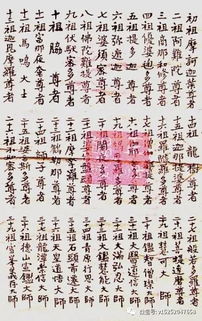 初祖摩訶迦葉尊者
二祖阿難陀尊者
三祖商那和修尊者
四祖優婆毱多尊者
五祖提多迦尊者
六祖彌遮迦尊者
七祖婆須蜜尊者
八祖佛陀難提尊者
九祖伏馱蜜多尊者
十祖脇尊者
十一祖富那夜奢尊者
十二祖馬鳴大士
十三祖迦毘摩羅尊者
十四祖龍樹尊者
十五祖迦那提婆尊者
十六祖羅睺羅多尊者
十七祖僧伽難提尊者
十八祖伽耶舍多尊者
十九祖鳩摩羅多尊者
二十祖闍夜多尊者
二十二祖摩拏羅尊者
二十三祖鶴勒那尊者
二十四祖師子尊者
二十七祖般若多羅尊者
二十八祖菩提達磨尊者
二十九祖慧可大師
三十祖鑑智僧璨大師
三十一祖大醫道信大師
三十二祖大滿弘忍大師
三十三祖大鑑慧能大師
三十四祖青原行思大師
三十五祖石頭希遷大師
三十六祖天皇道悟大師
三十七祖龍潭崇信大師
三十八祖德山宣鑑大師
三十九祖雪峯義存大師
v15252047658